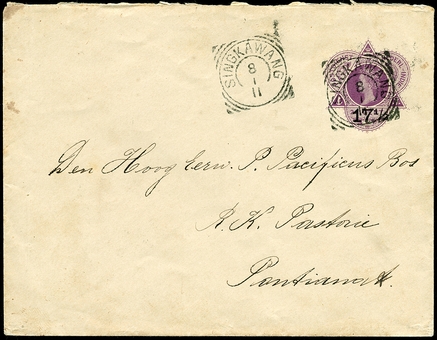 SINGKAWANG
8
1
11
SINGKAWANG
8
17½
Den Hoog Eerw. P. Pacificus Bos
R. K. Pastorie
Pontianak.